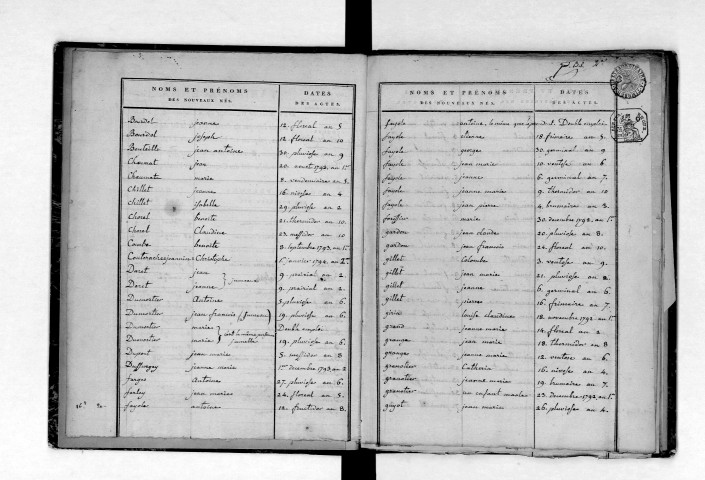 NOMS ET PRÉNOMS DATES
DES NOUVEAUX NÉS. DES ACTES.
jeanne 12. floreal an 5
joseph 12. floreal an 10
Bouteille jean antoine 30. pluviose an 9
Charnat 20. aout 1793. an 1er
Chaumate marie 8. vendemiaire an 5.
Chillet jeanne 16. nivose an 4
Chillet isabelle 29. pluviose an 2
Choral benoite 21. thermidor an 10.
Choral Claudine 23. messidor an 10
Combe benoite 8. septembre 1793. an 1er
Christophe janvier 1794. an 2e
Doret jean 9. prairial an 2.
Doret jeanne jumeaux 9. prairial an 2
Dumortier Antoine pluviose an 6
Dumortier jean françois (jumeau) 19. pluviose an 6.
Dumortier marie Double emploi
Dumortier marie jumelle 19. pluviose an 6.
Duport jean marie 5. messidor an 8
jeanne marie 1er decembre 1793. an 2
farges Antoine 27. pluviose an 6.
jean marie 24. floreal an 5.
fayole antoine 12. fructidor an 8.
NOMS ET PRÉNOMS DATES
DES NOUVEAUX NÉS. DES ACTES.
fayole antoine, le même Double emploi
fayole etienne 18. frimaire an 5.
fayole georges 30. germinal an 9
fayole jean marie 10. ventose an 6
fayole jeanne 6. germinal an 7.
fayole jeanne marie 9. thermidor an 10
fayole jean pierre 4. brumaire an 3.
marie 30. decembre 1792. an 1er
jean claude 20. pluviose an 8.
jean francois 24. floreal an 10.
gillet Colombe 3. ventose an 9.
gillet jean marie 21. pluviose an 2.
gillet jeanne 6. germinal an 6
gillet pierre 16. frimaire an 7.
girin louise claudine 18. novembre 1792 an 1er
grand jeanne marie 14. floreal an 2
grange jean marie 18. thermidor an 8
grange jeanne marie 12. ventose an 6.
granotier Catherin 16. nivose an 4.
granotier jeanne marie 19. brumaire an 7.
granotier un enfant masle 23. decembre 1792. an 1er
guyot jean marie 26. pluviose an 4.